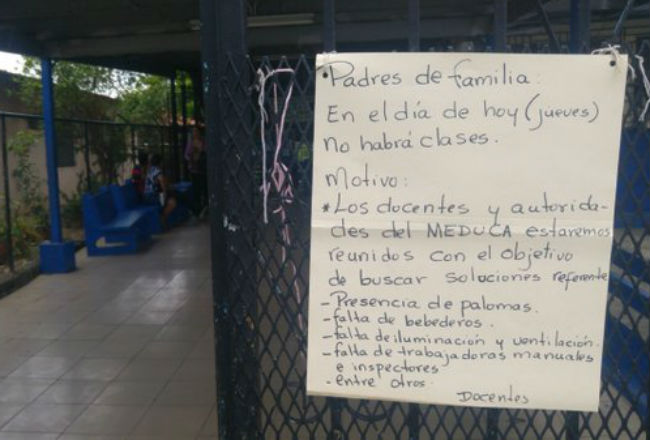 Padres de familia:
En el día de hoy (jueves)
No habrá clases.
Motivo:
*Los docentes y autorida-
des del MEDUCA estaremos
reunidos con el objetivo
de buscar soluciones referente
- Presencia de palomas.
- falta de bebederos.
- falta de iluminación y ventilación.
- falta de trabajadoras manuales
e inspectores
- entre otros.
Docentes